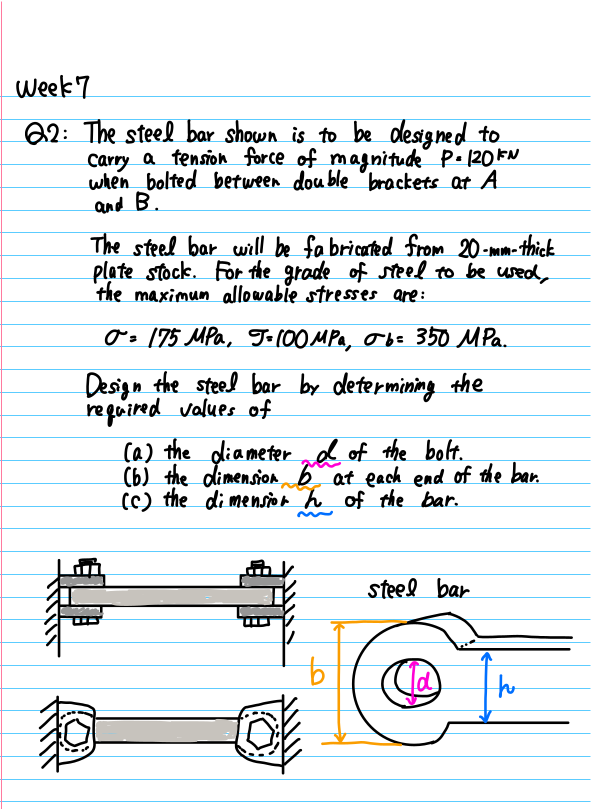 Week 7
Q2: The steel bar shown is to be designed to
carry a tension force of magnitude P=120 kN
when bolted between double brackets at A
and B.
The steel bar will be fabricated from 20-mm-thick
plate stock. For the grade of steel to be used,
the maximum allowable stresses are:
σ = 175 MPa, τ=100 MPa, σb= 350 MPa.
Design the steel bar by determining the
required values of
(a) the diameter d of the bolt.
(b) the dimension b at each end of the bar.
(c) the dimension h of the bar.
steel bar
b
d
h